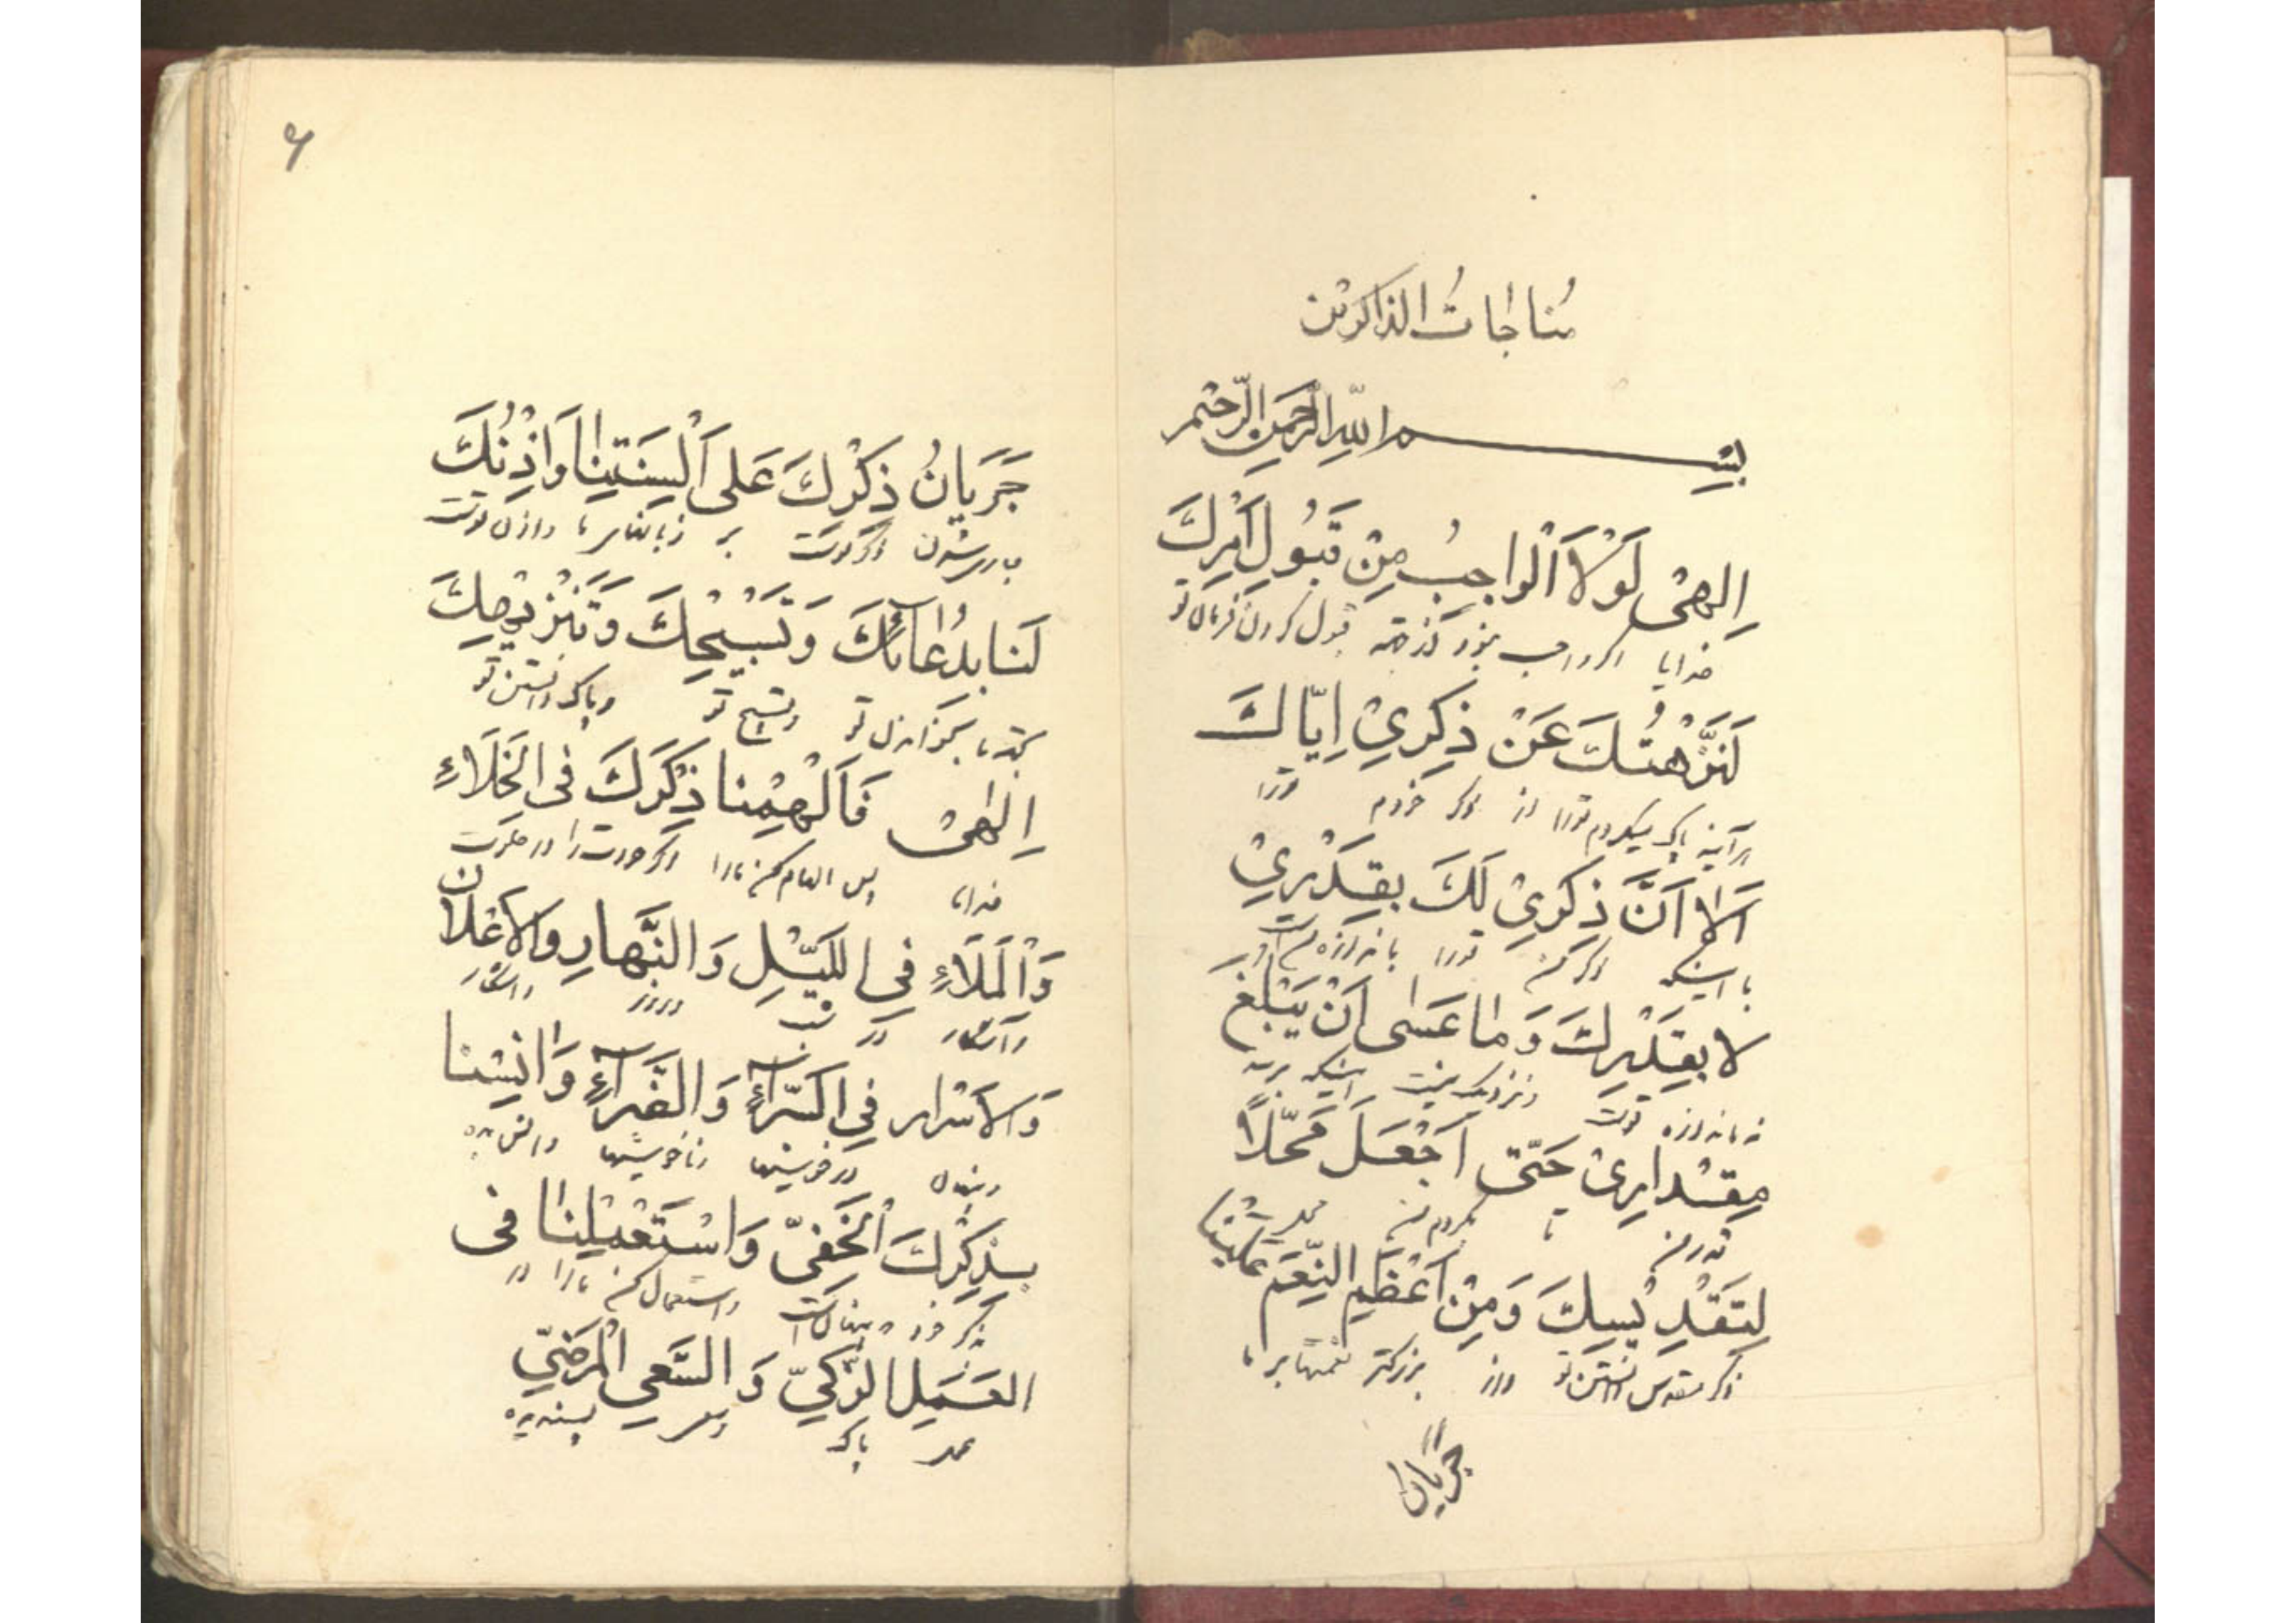 مُناجاتُ الذاکرین
بِسْمِ اللّهِ الرَّحمنِ الرَّحیم
اِلهیْ لَوْلاَ الْواجِبُ مِنْ قَبُولِ اَمْرِكَ
خدایا اگر واجب نبود قبول کردن فرمان تو
لَنَزَّهْتُكَ عَنْ ذِکْریْ اِیّاكَ
هرآینه پاک میکردم تورا از ذکر خودم تورا
اَلاٰ اَنَّ ذِکْریْ لَكَ بِقَدْریْ
با اینکه ذکر من تورا باندازه من است
لا بِقَدْرِكَ وَ ما عَسٰی اَنْ یَبْلُغَ
نه باندازه توست و نزدیک نیست اینکه برسد
مِقْداریْ حَتّی اَجْعَلَ مَحَلّاً
قدر من تا بگردم من محل
لِتَقْدِیْسِكَ وَ مِنْ اَعْظَمِ النِّعَمِ عَلَیْنا
ذکر مقدس دانستن تو و از بزرگتر نعمتها بر ما
جریان
۶
جَرَیانُ ذِکْرِكَ عَلی اَلْسِنَتِنا وَ اِذْنُكَ
جاری شدن ذکر توست بر زبانهای ما و اذن توست
لَنا بِدُعآئِكَ وَ تَسْبیْحِكَ وَ تَنْزیْهِكَ
بخواندن تو و تسبیح تو و پاک دانستن تو
اِلٰهیْ فَاَلْهِمْنا ذِکْرَكَ فی الْخَلَاءِ
خدایا پس الهام کن مارا ذکر خودت را در خلوت
وَ الْمَلَاءِ فی اللَّیْلِ وَ النَّهارِ وَ الاَعْلان
و آشکار در شب و روز و آشکار
وَ الاَسْرار فِی السَّرّآءِ وَ الضَّرآءِ وَ انِسْنا
و پنهان در خوشیها و ناخوشیها و انس بده
بِذِکْرِكَ الْخَفِیّ وَ اسْتَعْمِلْنا فی
بذکر خود پنهان است و استعمال کن مارا در
العَمَلِ الزَّکِیّ وَ السَّعیِ الْمَرْضیّ
عمل پاک و سعی پسندیده